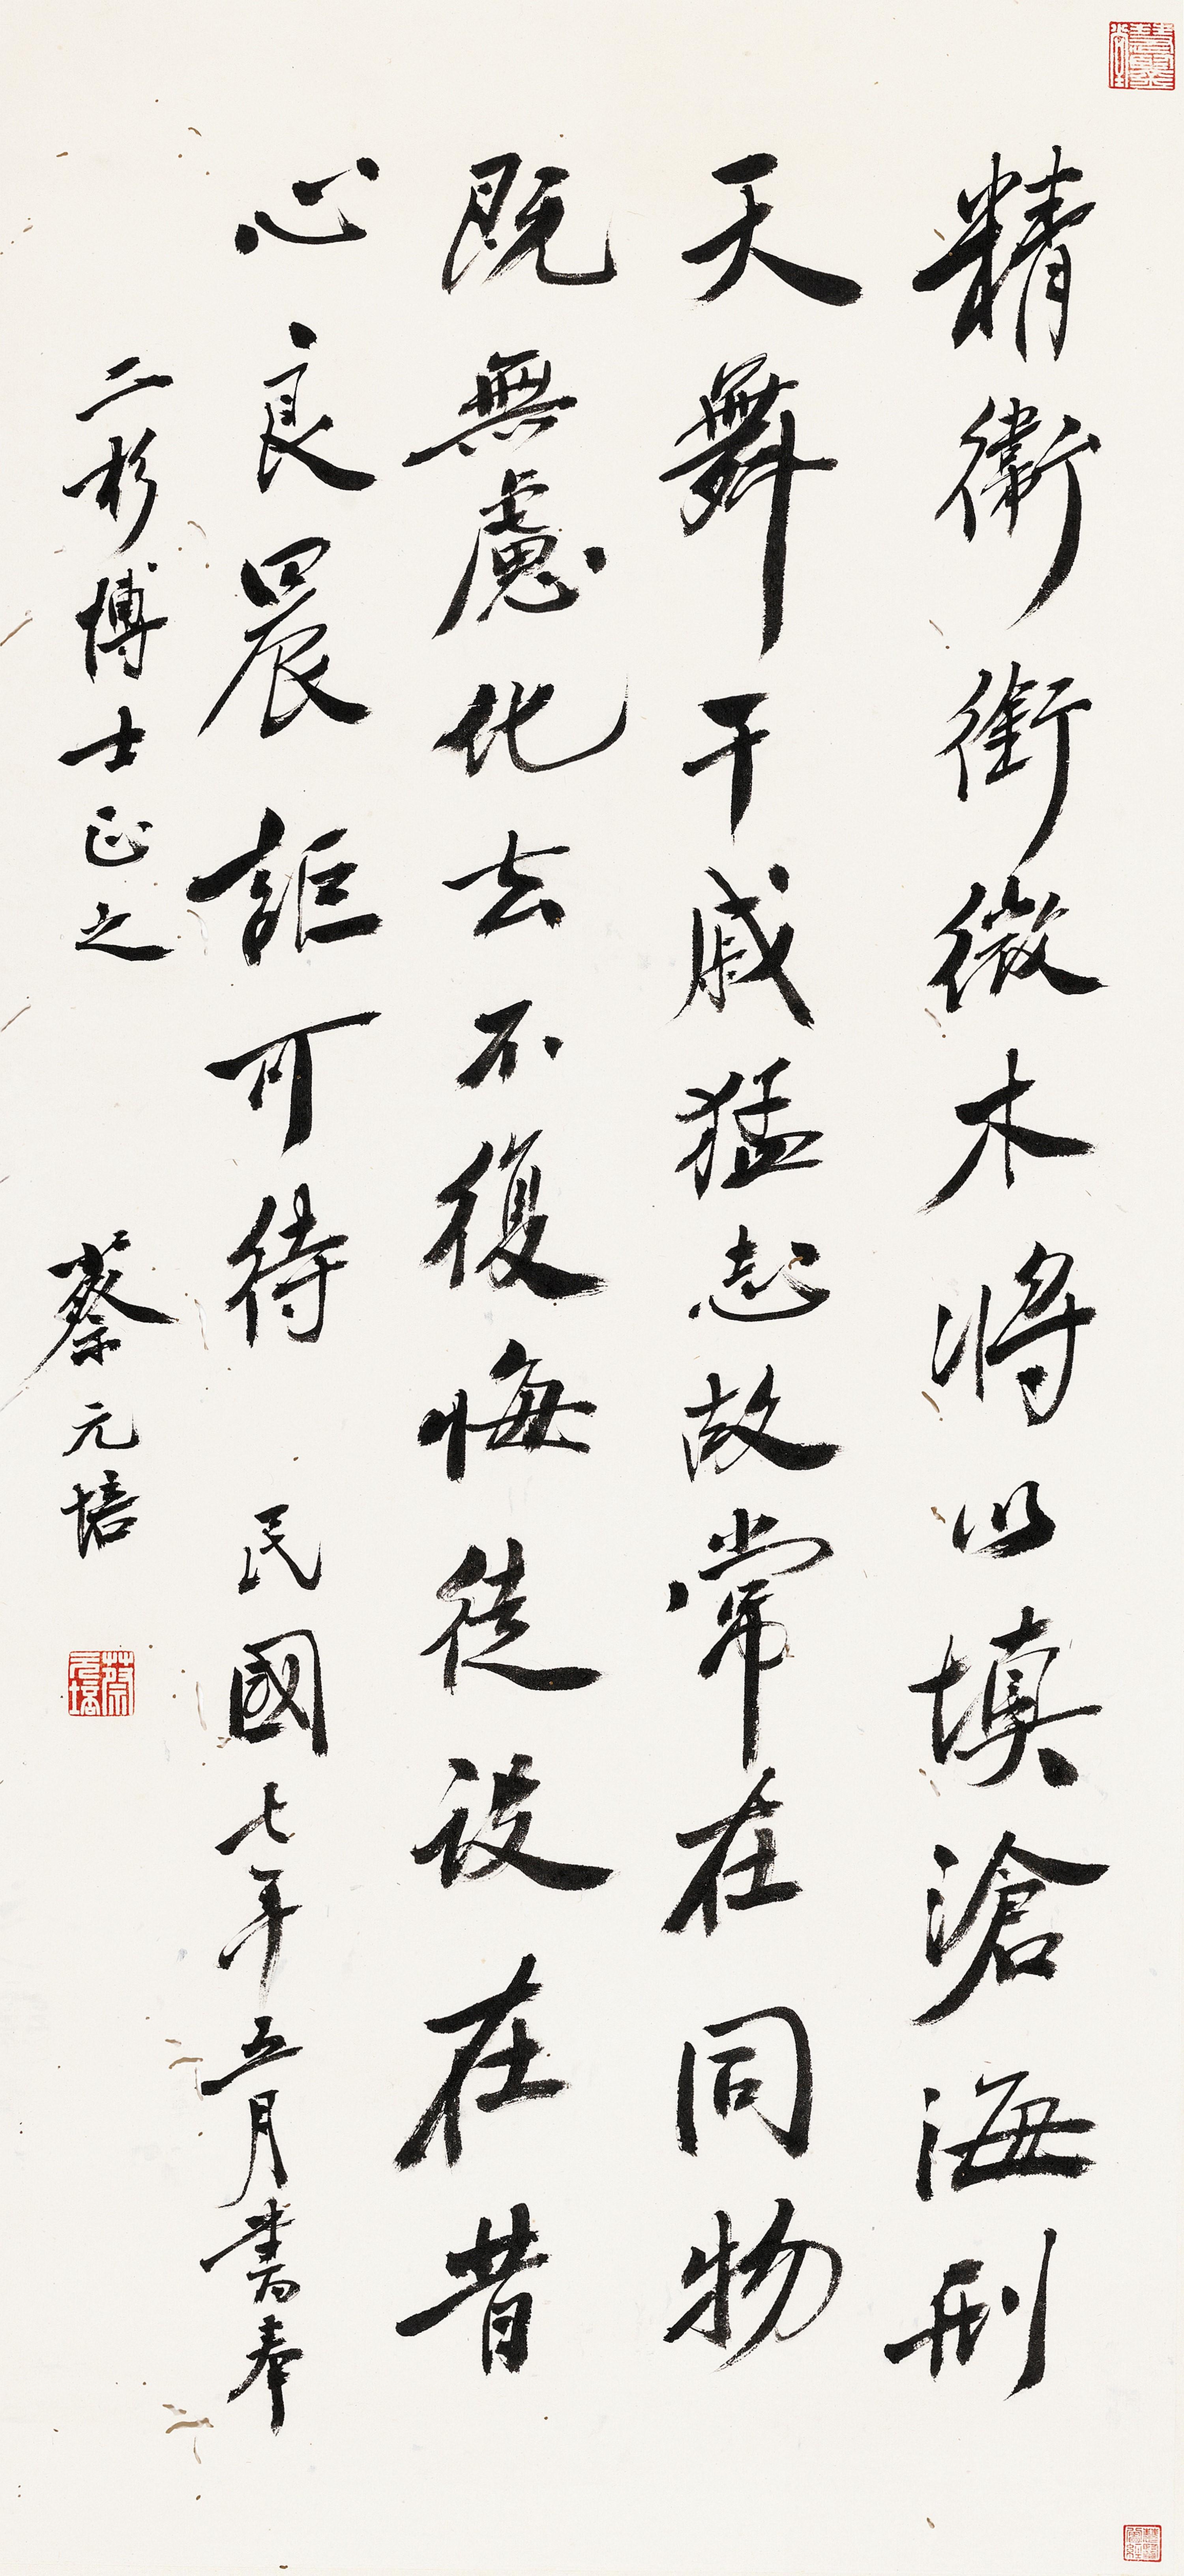 精衛銜微木將以填滄海刑
天舞干戚猛志故常在同物
既無慮化去不復悔徒設在昔
心良晨詎可待 民國七年五月書奉
二杉博士正之 蔡元培
蔡元培